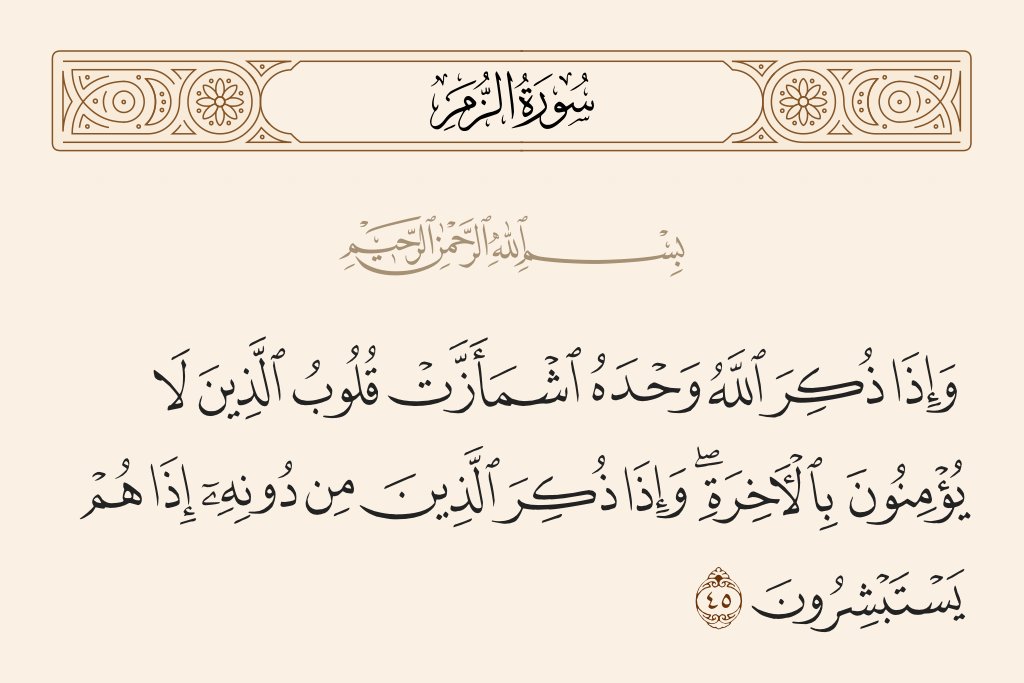 سُورَةُ الزُّمَرِ
بِسْمِ ٱللَّهِ ٱلرَّحْمَٰنِ ٱلرَّحِيمِ
وَإِذَا ذُكِرَ ٱللَّهُ وَحْدَهُ ٱشْمَأَزَّتْ قُلُوبُ ٱلَّذِينَ لَا
يُؤْمِنُونَ بِٱلْأَخِرَةِ ۖ وَإِذَا ذُكِرَ ٱلَّذِينَ مِن دُونِهِۦٓ إِذَا هُمْ
يَسْتَبْشِرُونَ ٤٥